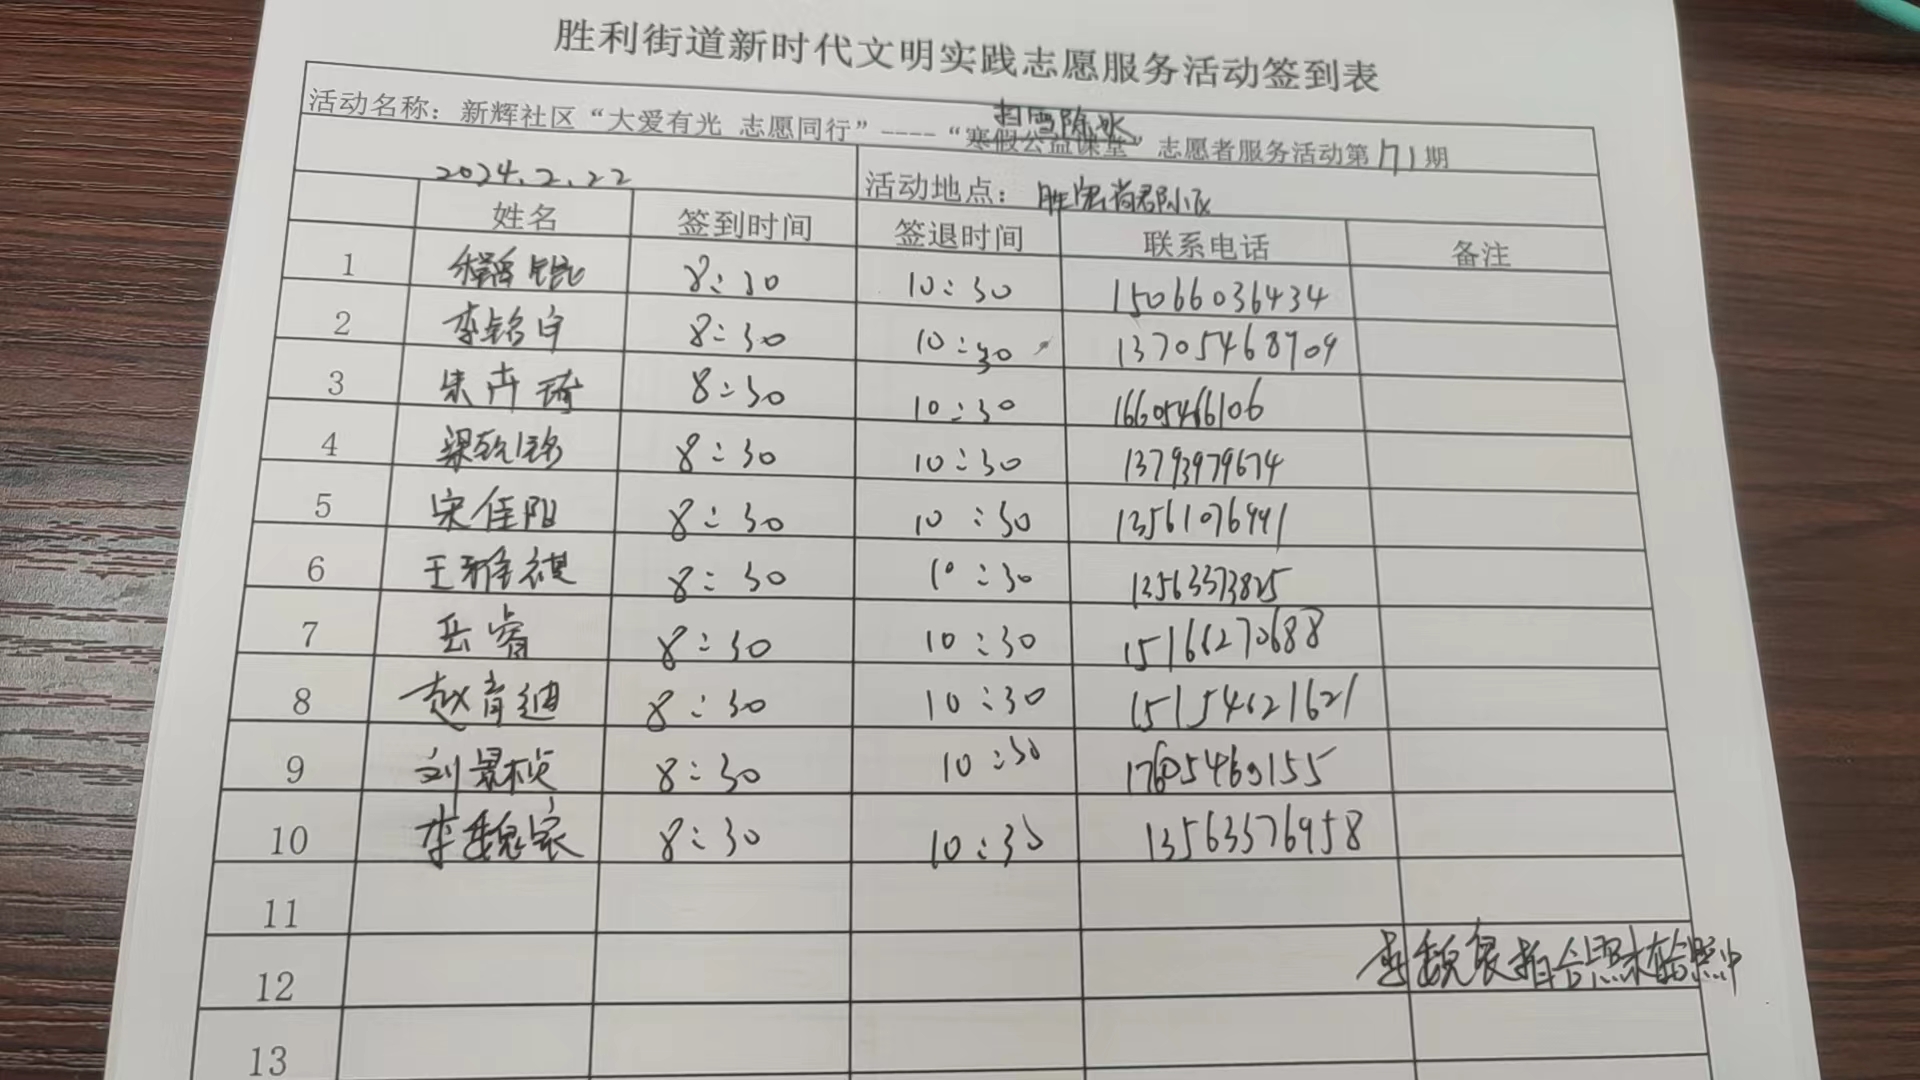 胜利街道新时代文明实践志愿服务活动签到表
扫雪除冰
活动名称：新辉社区“大爱有光 志愿同行”----“寒假公益课堂”志愿者服务活动第171期
2024.2.22 活动地点：胜宏尚郡小区
姓名 签到时间 签退时间 联系电话 备注
1 8:30 10:30 15066036434
2 李铭宇 8:30 10:30 13705468909
3 朱卉琦 8:30 10:30 16605466106
4 梁 铭 8:30 10:30 13793979674
5 宋佳阳 8:30 10:30 13561076991
6 王雅祺 8:30 10:30 13563373825
7 岳睿 8:30 10:30 15166270688
8 赵育迪 8:30 10:30 15154621621
9 刘景桢 8:30 10:30 17605460155
10 李魏家 8:30 10:30 13563376958
11
12 李魏家 合照未在合照中
13